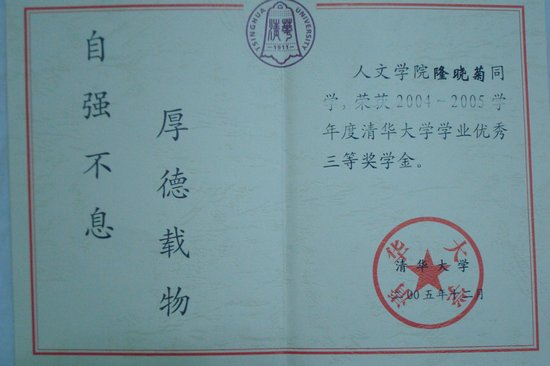 TSINGHUA UNIVERSITY
清華
1911
自强不息
厚德载物
人文学院隆晓菊同
学,荣获2004~2005学
年度清华大学学业优秀
三等奖学金。
清华大学
清华大学
二〇〇五年十二月